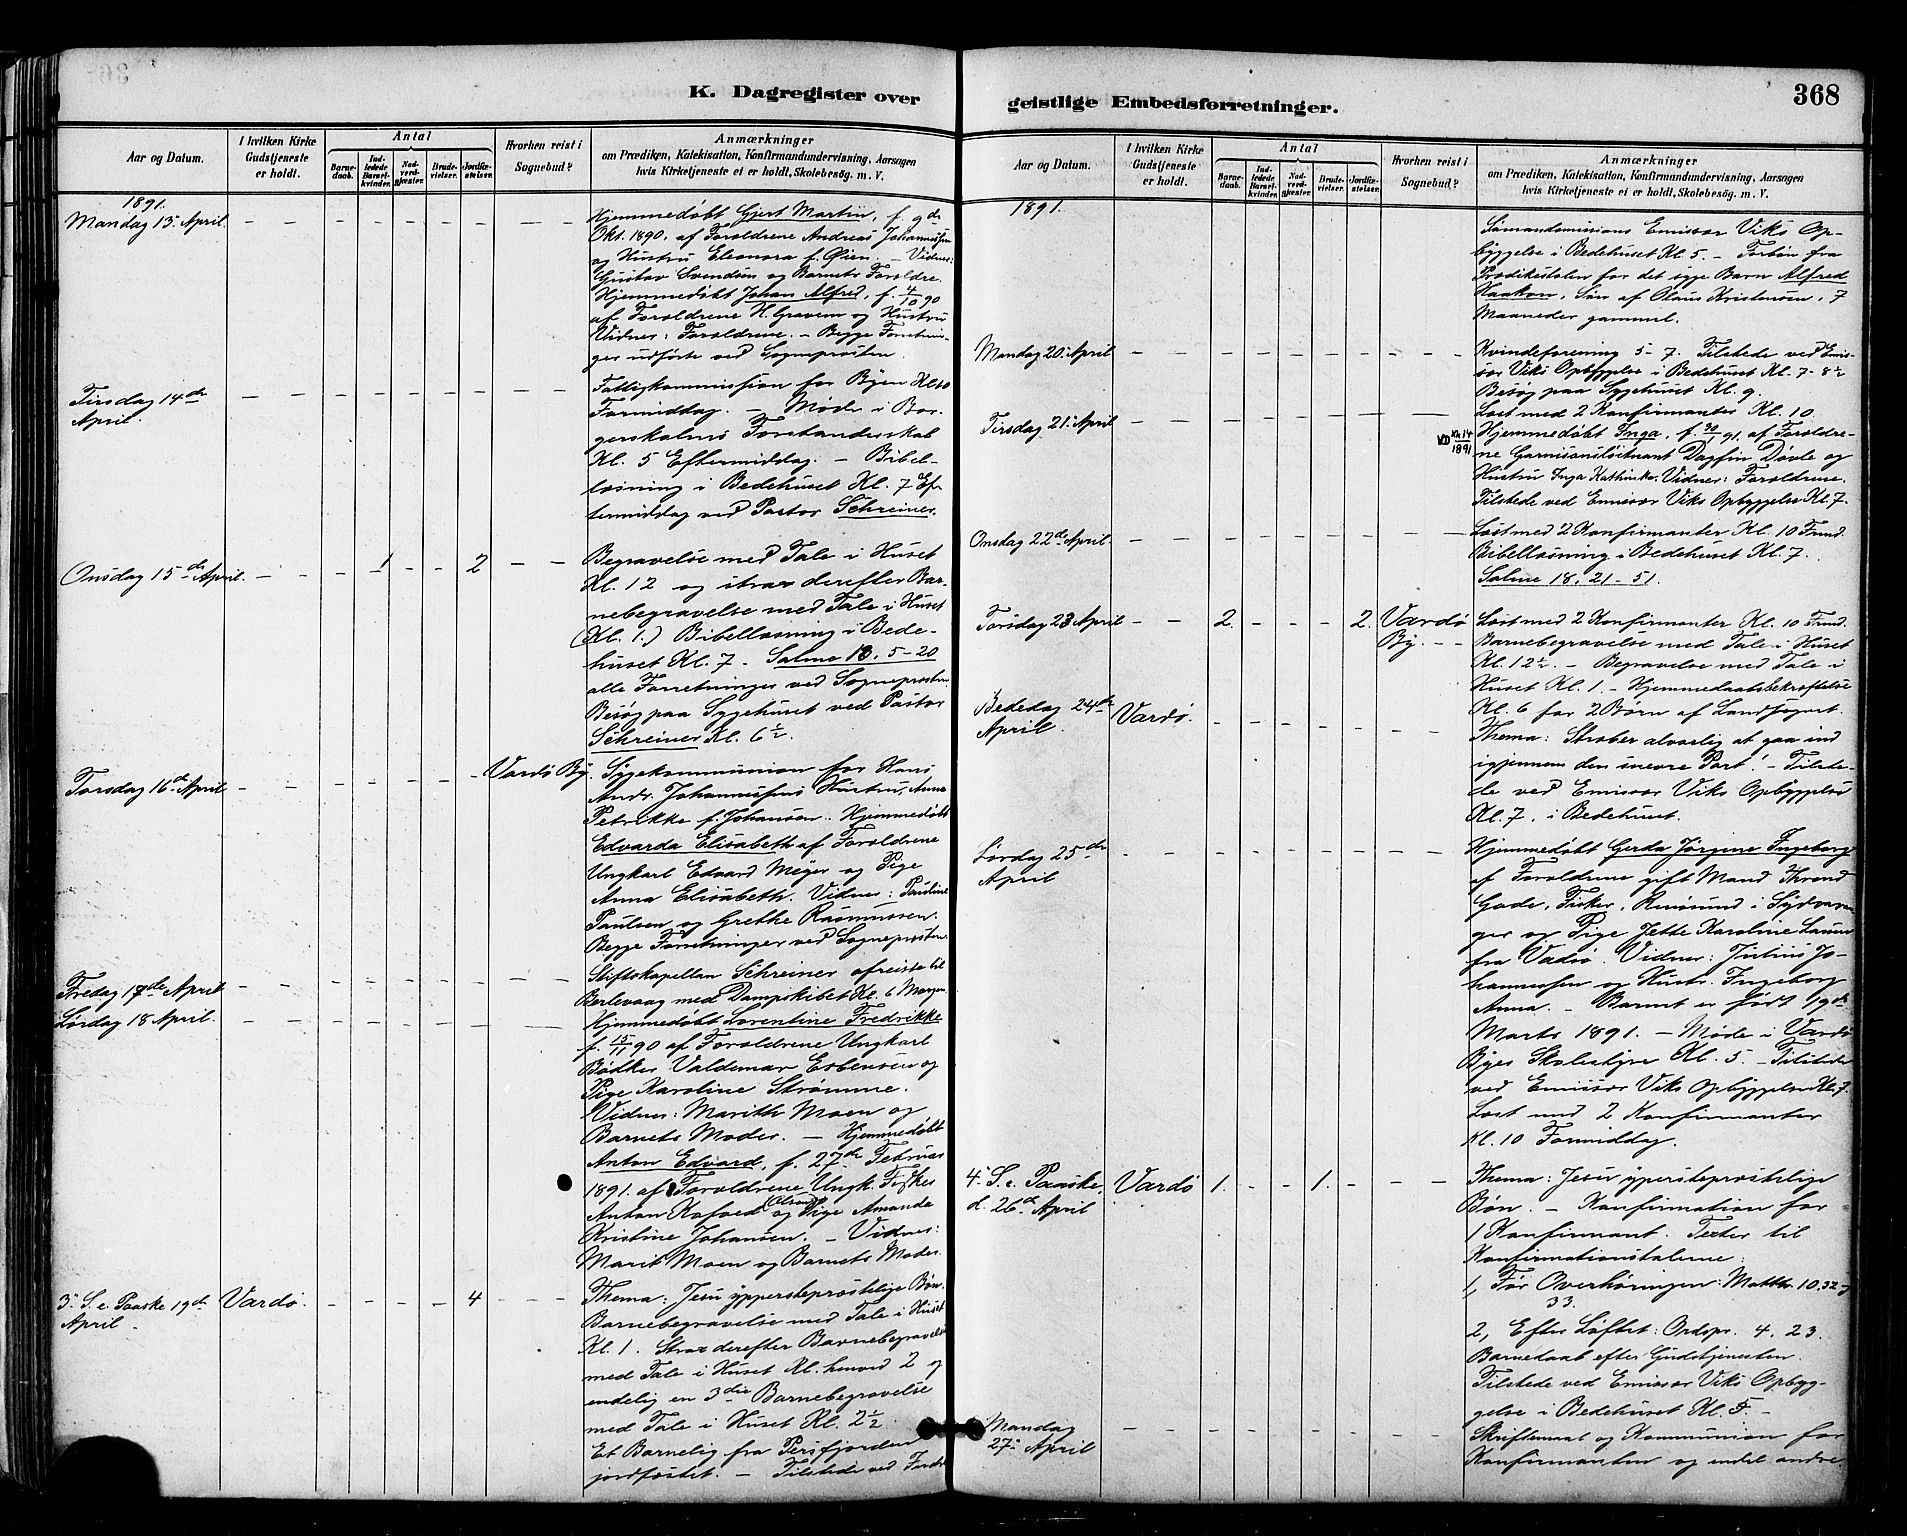 K. Dagregister over
Aar og Datum.
I hvilken Kirke Gudstjeneste er holdt.
Antal
Barnedaab.
Indledede Barselkvinder.
Nadvergjester.
Brudevielser.
Jordfæstelser.
Hvorhen reist i Sognebud?
Anmærkninger
om Prædiken, Katekisation, Konfirmandundervisning, Aarsagen
hvis Kirketjeneste ei er holdt, Skolebesøg. m. V.
1891.
Mandag 13 April
Hjemmedøbt Gjert Martin, f. 9de
Okt. 1890, af Forældrene Andreas Johannessen
og Hustru Eleonora f. Øien. – Vidner:
Gustav Svendsen og Barnets Forældre.
Hjemmedøbt Johan Alfred, f. 4/10 90
af Forældrene H. Gravem og Hustru
Vidner: Forældrene. – Begge Forretnin-
ger udførte ved Sogneprøsten.
Tirsdag 14de
April.
Fattigkommission for Byen Kl. 10
Formiddag. – Møde i Bor-
gerskolens Forstanderskab
Kl. 5 Eftermiddag. – Bibel-
læsning i Bedehuset Kl. 7 Ef-
termiddag ved Pastor Schreiner.
Onsdag 15de April. – – – 1 – – 2 – –
Begravelse med Tale i Huset
Kl. 12 og strax derefter Bar-
nebegravelse med Tale i Huset
(Kl. 1.) Bibellæsning i Bede-
huset Kl. 7 – Salme 18, 5–20
alle Forretninger ved Sogneprøsten.
Besøg paa Sygehuset ved Pastor
Schreiner Kl. 6½.
Torsdag 16de April
Vardø By.
Sygekommunion for Hans
Andr. Johannesens Hustru, Anna
Petrikke f. Johansen. Hjemmedøbt
Edvarda Elisabeth af Forældrene
Ungkarl Edvard Meyer og Pige
Anna Elisabeth. Vidner: Pauline
Paulsen og Grethe Rasmussen.
Begge Forretninger ved Sogneprøsten.
Fredag 17de April
Stiftskapellan Schreiner afreiste til
Berlevaag med Dampskibet Kl. 6 Morgen.
Lørdag 18 April.
Hjemmedøbt Lorentine Fredrikke
f. 15/11 90 af Forældrene Ungkarl
Bødker Valdemar Esbensen og
Pige Karoline Strømme.
Vidner: Marith Moen og
Barnets Moder. – Hjemmedøbt
Anton Edvard, f. 27de Februar
1891. af Forældrene Ungk. Fisker
Anton Kofoed (Olsen) og Pige Amanda
Kristine Johansen. – Vidner:
Marit Moen og Barnets Moder.
3. S. e. Paaske 19de
April
Vardø. – – – – 4 – – –
Thema: Jesu ypperstepræstelige Bøn.
Barnebegravelse med Tale i Huset
Kl. 1. Strax derefter Barnebegravelse
med Tale i Huset Kl. henved 2 og
endelig en 3die Barnebegravelse
med Tale i Huset Kl. 2½
Et Barnelig fra Persfjorden
jordfæstet. – Tilstede ved
geistlige Embedsforretninger.
368
Aar og Datum.
I hvilken Kirke Gudstjeneste er holdt.
Antal
Barnedaab.
Indledede Barselkvinder.
Nadvergjester.
Brudevielser.
Jordfæstelser.
Hvorhen reist i Sognebud?
Anmærkninger
om Prædiken, Katekisation, Konfirmandundervisning, Aarsagen
hvis Kirketjeneste ei er holdt, Skolebesøg m. V.
1891.
Sømandsmissions Emissær Viks Op-
byggelse i Bedehuset Kl. 5. – Forbøn fra
Prædikestolen for det syge Barn Alfred
Haakon, Søn af Olaus Kristensen, 7
Maaneder gammel.
Mandag 20. April
Kvindeforening 5–7. Tilstede ved Emis-
sær Viks Opbyggelse i Bedehuset Kl. 7–8½
Besøg paa Sygehuset Kl. 9.
Tirsdag 21. April
Læst med 2 Konfirmanter Kl. 10
Hjemmedøbt Inga, f. 30/1 91. af Forældre-
ne Garnisonsløitnant Dagfin Døvle og
Hustru Inga Kathinka. Vidner: Forældrene.
Tilstede ved Emissær Viks Opbyggelse Kl. 7.
Onsdag 22de April.
Læst med 2 Konfirmanter Kl. 10 Frmd.
Bibellæsning i Bedehuset Kl. 7.
Salme 18. 21–51.
Torsdag 23 April – – 2. – – – 2.
Vardø
By. – –
Læst med 2 Konfirmanter Kl. 10 Frmd.
Barnebegravelse med Tale i Huset
Kl. 12½. – Begravelse med Tale i
Huset Kl. 1. – Hjemmedaabsbekræftelse
Kl. 6 for 2 Børn af Landsognet.
Bededag 24de
April.
Vardø.
Thema: Stræber alvorlig at gaa ind
igjennem den snevre Port! – Tilste-
de ved Emissær Viks Opbyggelse
Kl. 7. i Bedehuset.
Lørdag 25de
April
Hjemmedøbt Gerda Jørgine Ingeborg
af Forældrene gift Mand Thrond
Gade, Fisker, i Sydvaran-
ger og Pige Jette Karoline
fra Vadsø. Vidner: Julius Jo-
hannesen og Hustr. Ingeborg
Anna. – Barnet er født 19de
Marts 1891. – Møde i Vardø
Byes Skolestyre Kl. 5 – Tilstede
ved Emissær Viks Opbyggelse Kl. 7.
Læst med 2 Konfirmanter
Kl. 10 Formiddag.
4. S. e. Paaske,
d. 26de April
Vardø 1. – – 1. – – –
Thema: Jesu ypperstepræstelige
Bøn. – Konfirmation for
1 Konfirmant. Texter til
Konfirmationstalerne:
1, Før Overhøringen: Matth. 10. 32–
33.
2, Efter Løftet: Ordspr. 4. 23.
Barnedaab efter Gudstjenesten.
Tilstede ved Emissær Viks Opbyg-
gelse i Bedehuset Kl. 5 –
Mandag
27. April
Skriftemaal og Kommunion for
Konfirmanten og endel andre